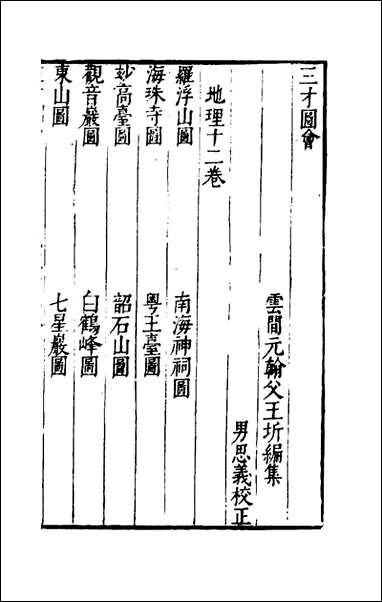 三才圖會
雲間元翰父王圻編集
男思義校正
地理十二卷
羅浮山圖　南海神祠圖
海珠寺圖　粤王臺圖
妙高臺圖　韶石山圖
觀音巖圖　白鶴峰圖
東山圖　七星巖圖